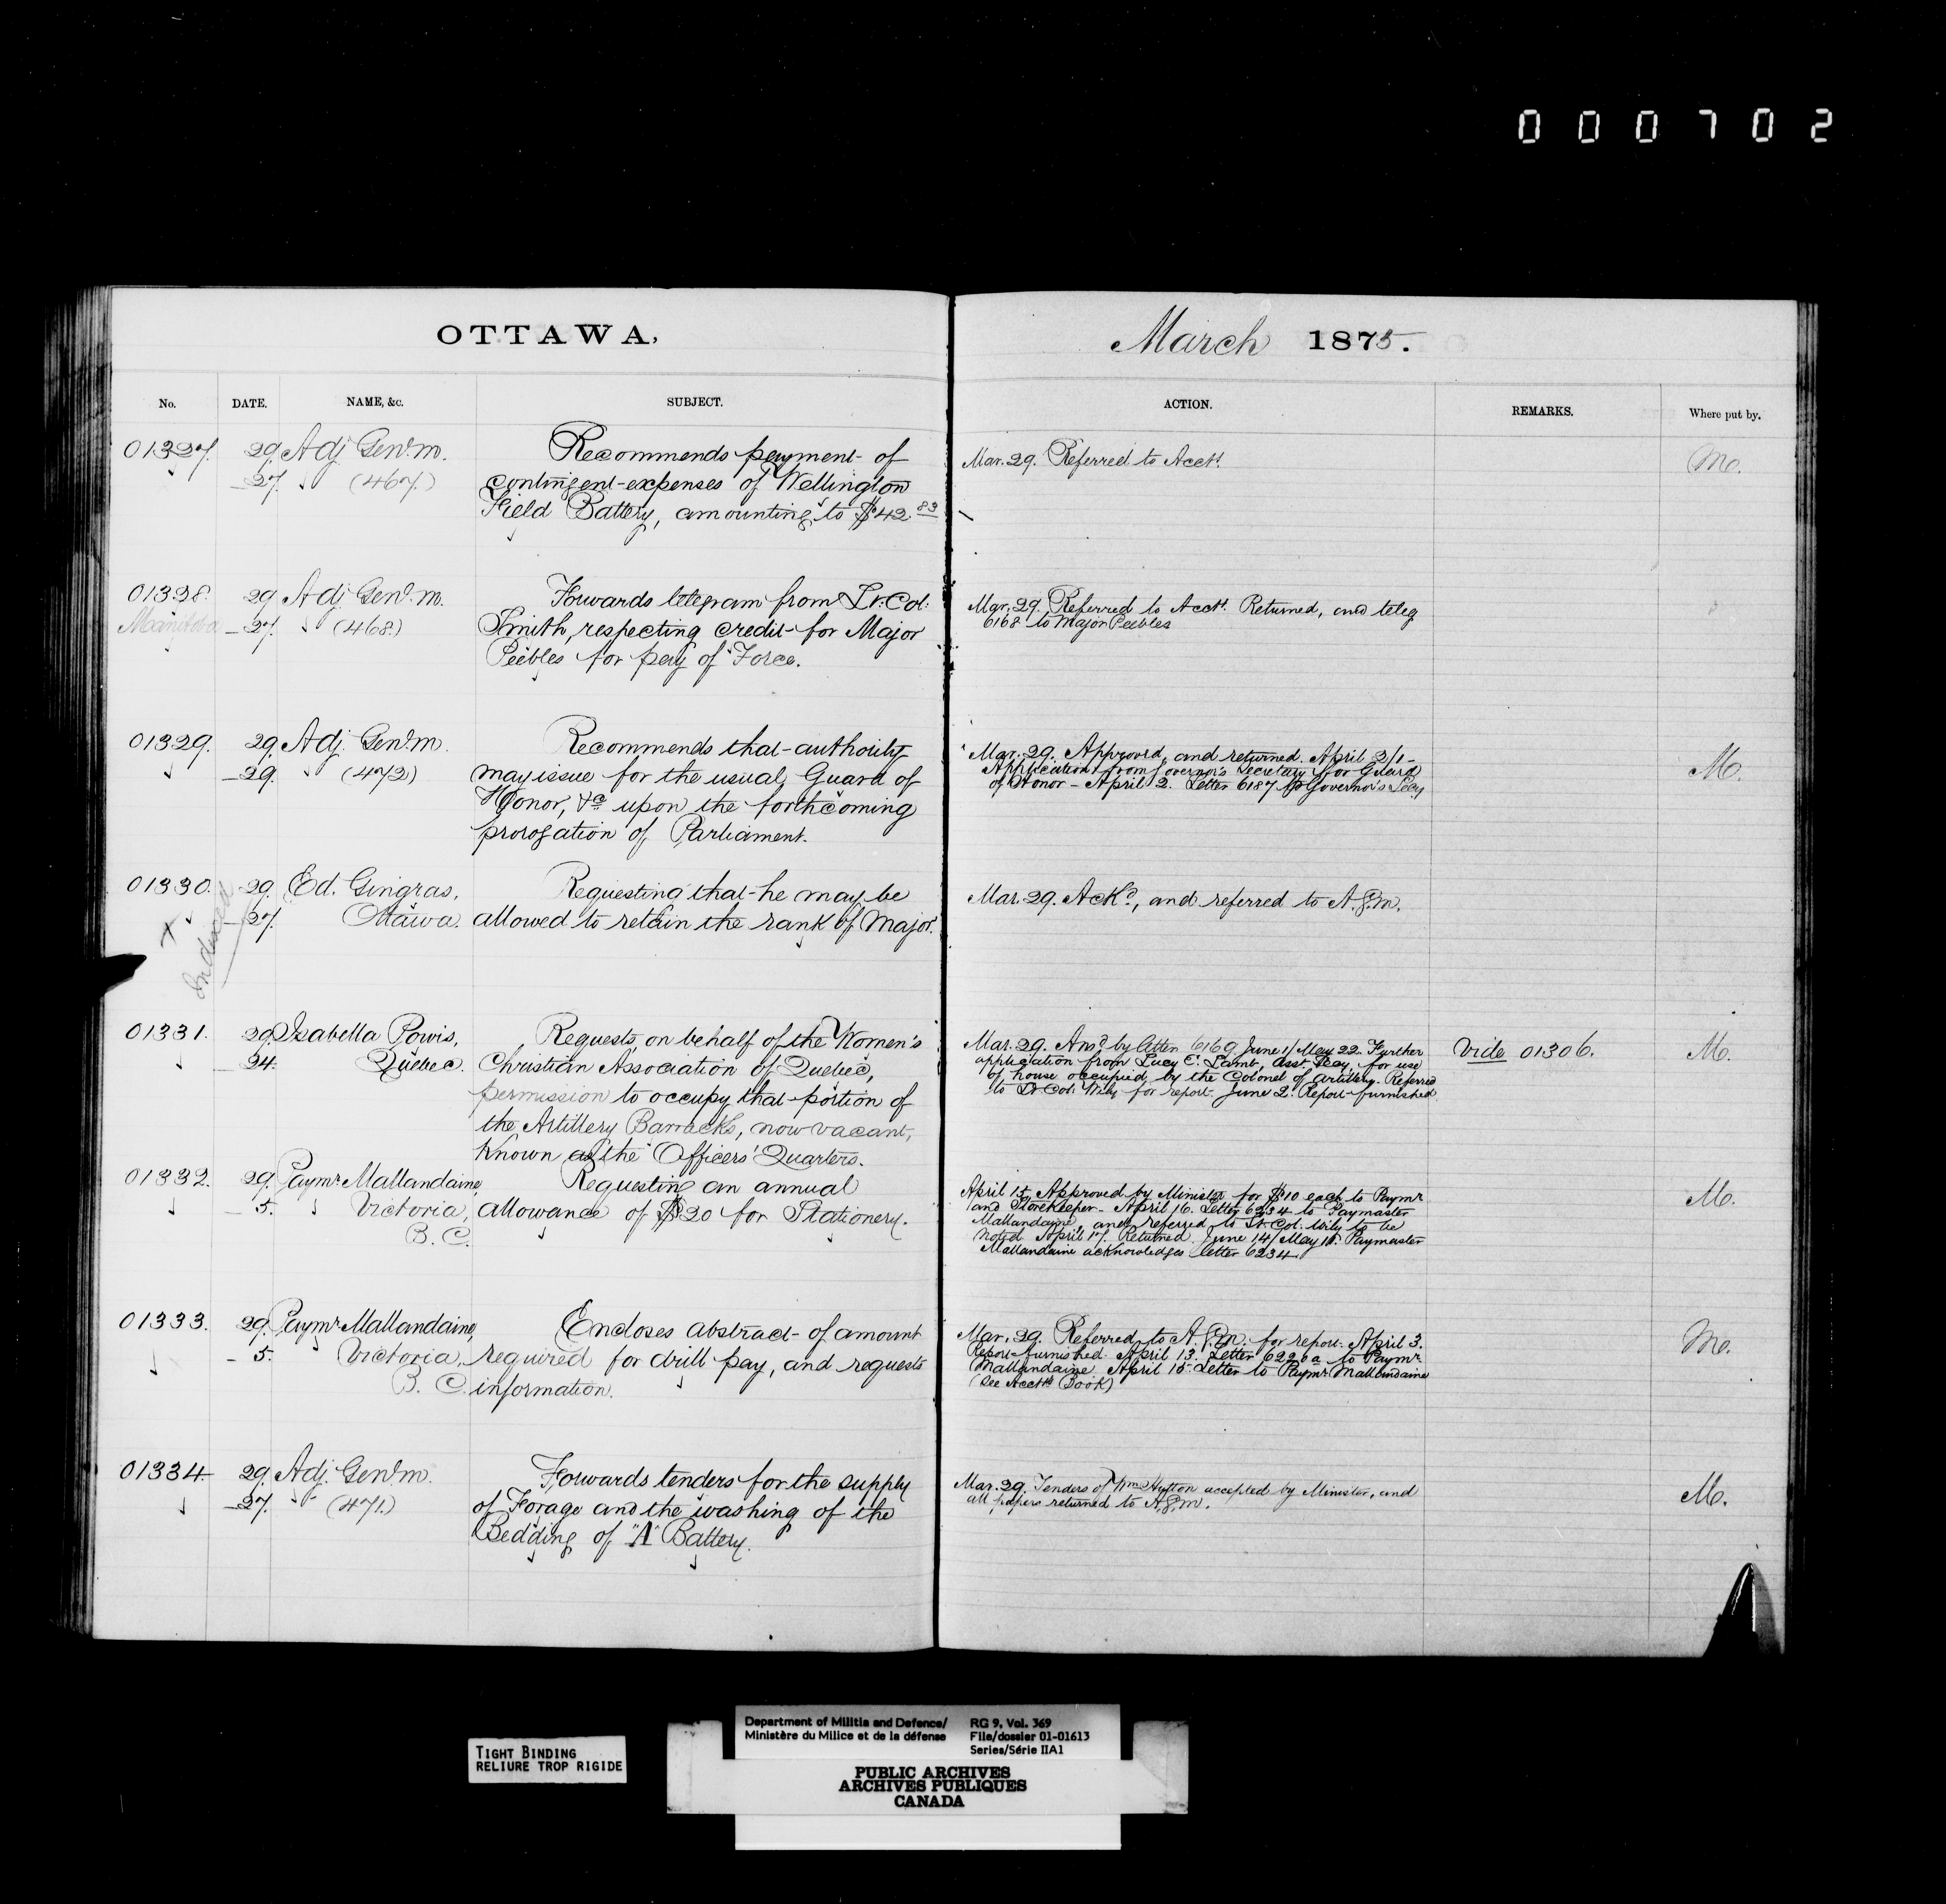 000702
OTTAWA,
March 1875.
No. DATE. NAME, &c. SUBJECT. ACTION. REMARKS. Where put by.
01327. 29. Adj. Genl. m. Recommends payment of
27. (467.) contingent expenses of Wellington
Field Battery, amounting to $42.83
Mar. 29. Referred to Acct.
M.
01328. 29 Adj. Genl. m. Forwards telegram from Lt. Col.
Manitoba 27. (468.) Smith, respecting credit for Major
Peebles for pay of Force.
Mar. 29. Referred to Acct. Returned, and teleg
6168 to Major Peebles
01329. 29. Adj. Genl. m. Recommends that authority
29. (472) may issue for the usual Guard of
Honor, &c upon the forthcoming
prorogation of Parliament.
Mar. 29. Approved, and returned. April 2/1
Application from Governor's Secretary for Guard
of Honor - April 2. Letter 6187 to Governor's Secy
M.
01330. 29. Ed. Gingras, Requesting that he may be
27. Ottawa. allowed to retain the rank of Major.
Indexed
Mar. 29. Ackd., and referred to A.G.m.
01331. 29. Isabella Powis, Requests, on behalf of the Women's
24. Quebec. Christian Association of Quebec,
permission to occupy that portion of
the Artillery Barracks, now vacant,
known as the Officers' Quarters.
Mar. 29. Ansd by letter 6169 June 1/May 22. Further
application from Lucy C. Lamb, Asst. Secy, for use
of house occupied by the Colonel of Artillery. Referred
to Lt. Col. Wily for report. June 2. Report furnished
Vide 01306.
M.
01332. 29. Paymr. Mallandaine, Requesting an annual
5. Victoria, allowance of $20 for Stationery.
B. C.
April 15. Approved by Minister for $10 each to Paymr
and Storekeeper - April 16. Letter 6234 to Paymaster
Mallandaine, and referred to Lt. Col. Wily to be
noted April 17. Returned. June 14/May 18. Paymaster
Mallandaine acknowledges letter 6234.
M.
01333. 29. Paymr. Mallandaine, Encloses abstract of amount
5. Victoria, required for drill pay, and requests
B. C. information.
Mar. 29. Referred to A.G.m. for report. April 3.
Report furnished. April 13. Letter 6220a to Paymr.
Mallandaine. April 15. Letter to Paymr. Mallandaine
(See Acct's Book)
M.
01334 29. Adj. Genl. m. Forwards tenders for the supply
27. (471.) of Forage and the washing of the
Bedding of "A" Battery.
Mar. 29. Tenders of Wm Hutton accepted by Minister, and
all papers returned to A.G.m.
M.
TIGHT BINDING
RELIURE TROP RIGIDE
Department of Militia and Defence/
Ministère du Milice et de la défense
RG 9, Vol. 369
File/dossier 01-01613
Series/Série IIA1
PUBLIC ARCHIVES
ARCHIVES PUBLIQUES
CANADA